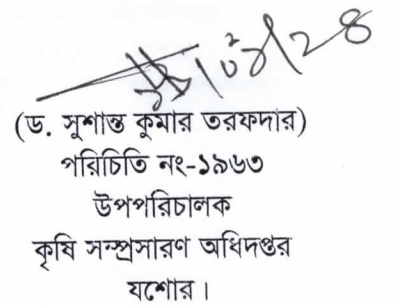 (ড. সুশান্ত কুমার তরফদার)
পরিচিতি নং-১৯৬৩
উপপরিচালক
কৃষি সম্প্রসারণ অধিদপ্তর
যশোর।